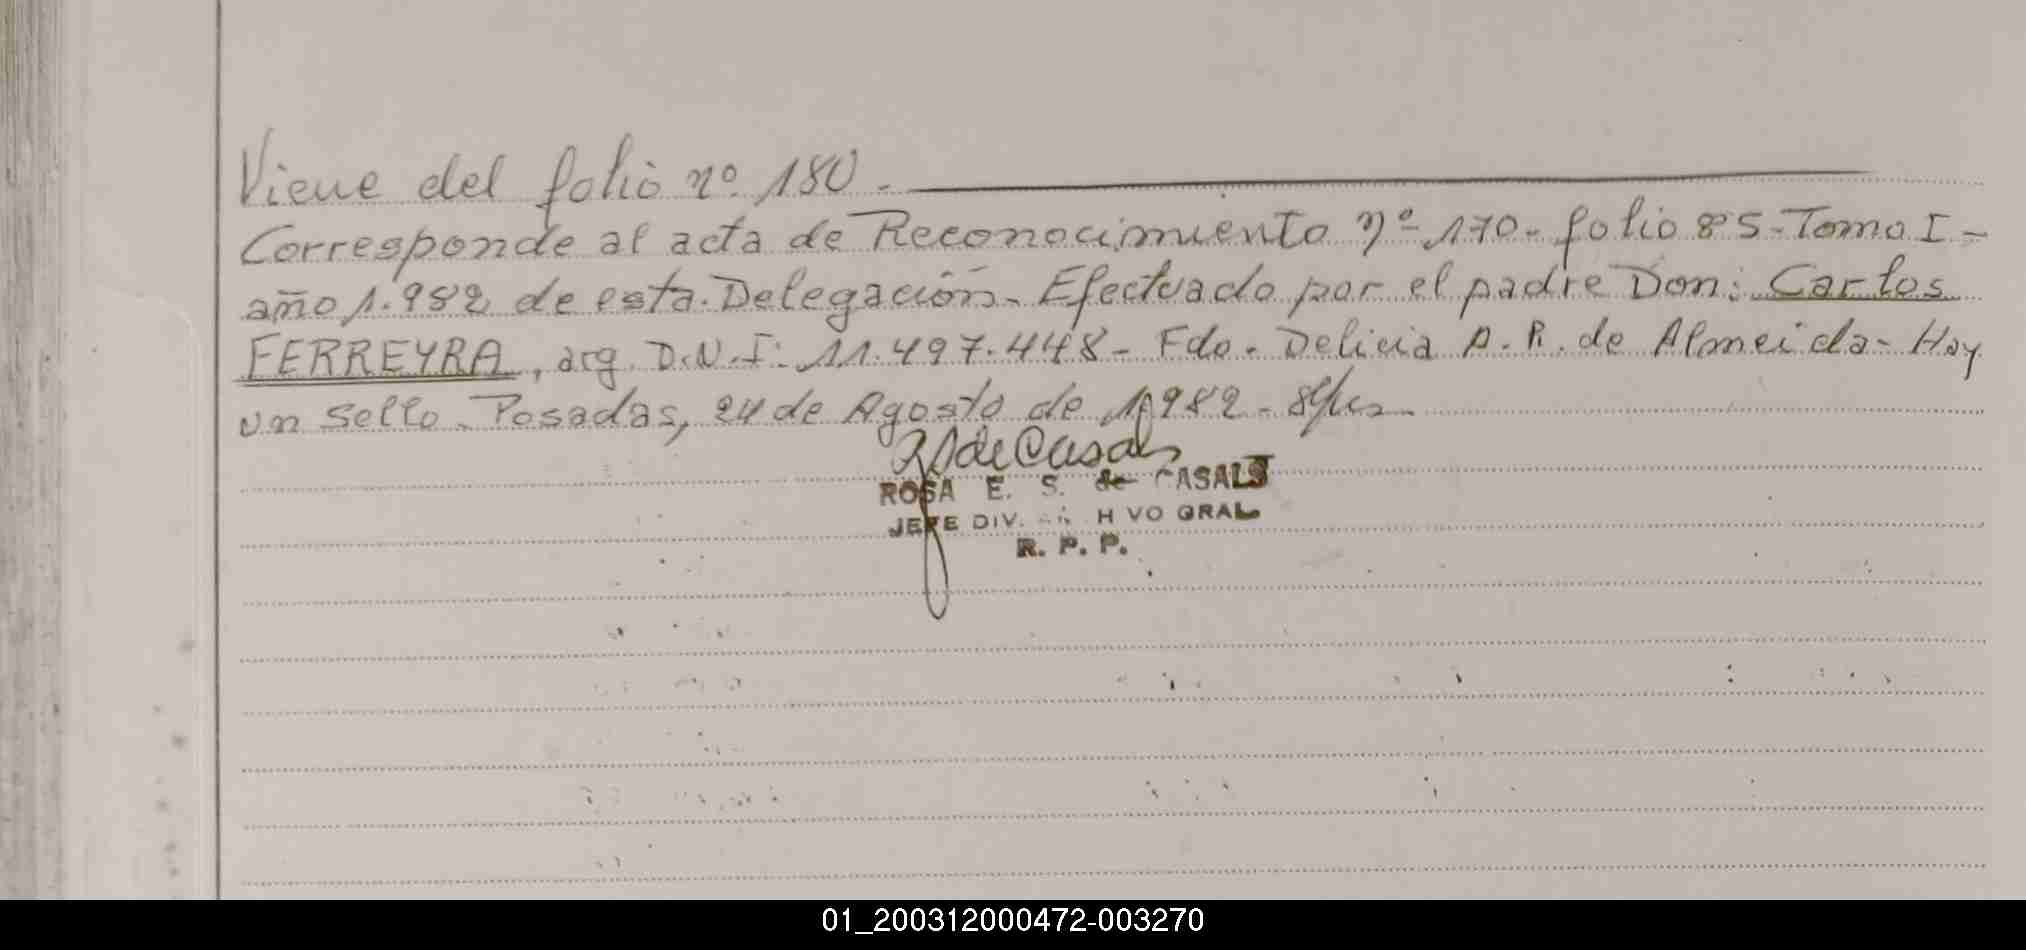 Viene del folio nº. 180.
Corresponde al acta de Reconocimiento nº 170- folio 85-Tomo I-
año 1.982 de esta Delegación- Efectuado por el padre Don: Carlos
FERREYRA, arg. D.N.I: 11.497.448- Fdo. Delicia A. R. de Almeida- Hay
un sello. Posadas, 24 de Agosto de 1982-
de Casals
ROSA E. S. de CASALS
JEFE DIV. H VO GRAL
R. P. P.
01_200312000472-003270